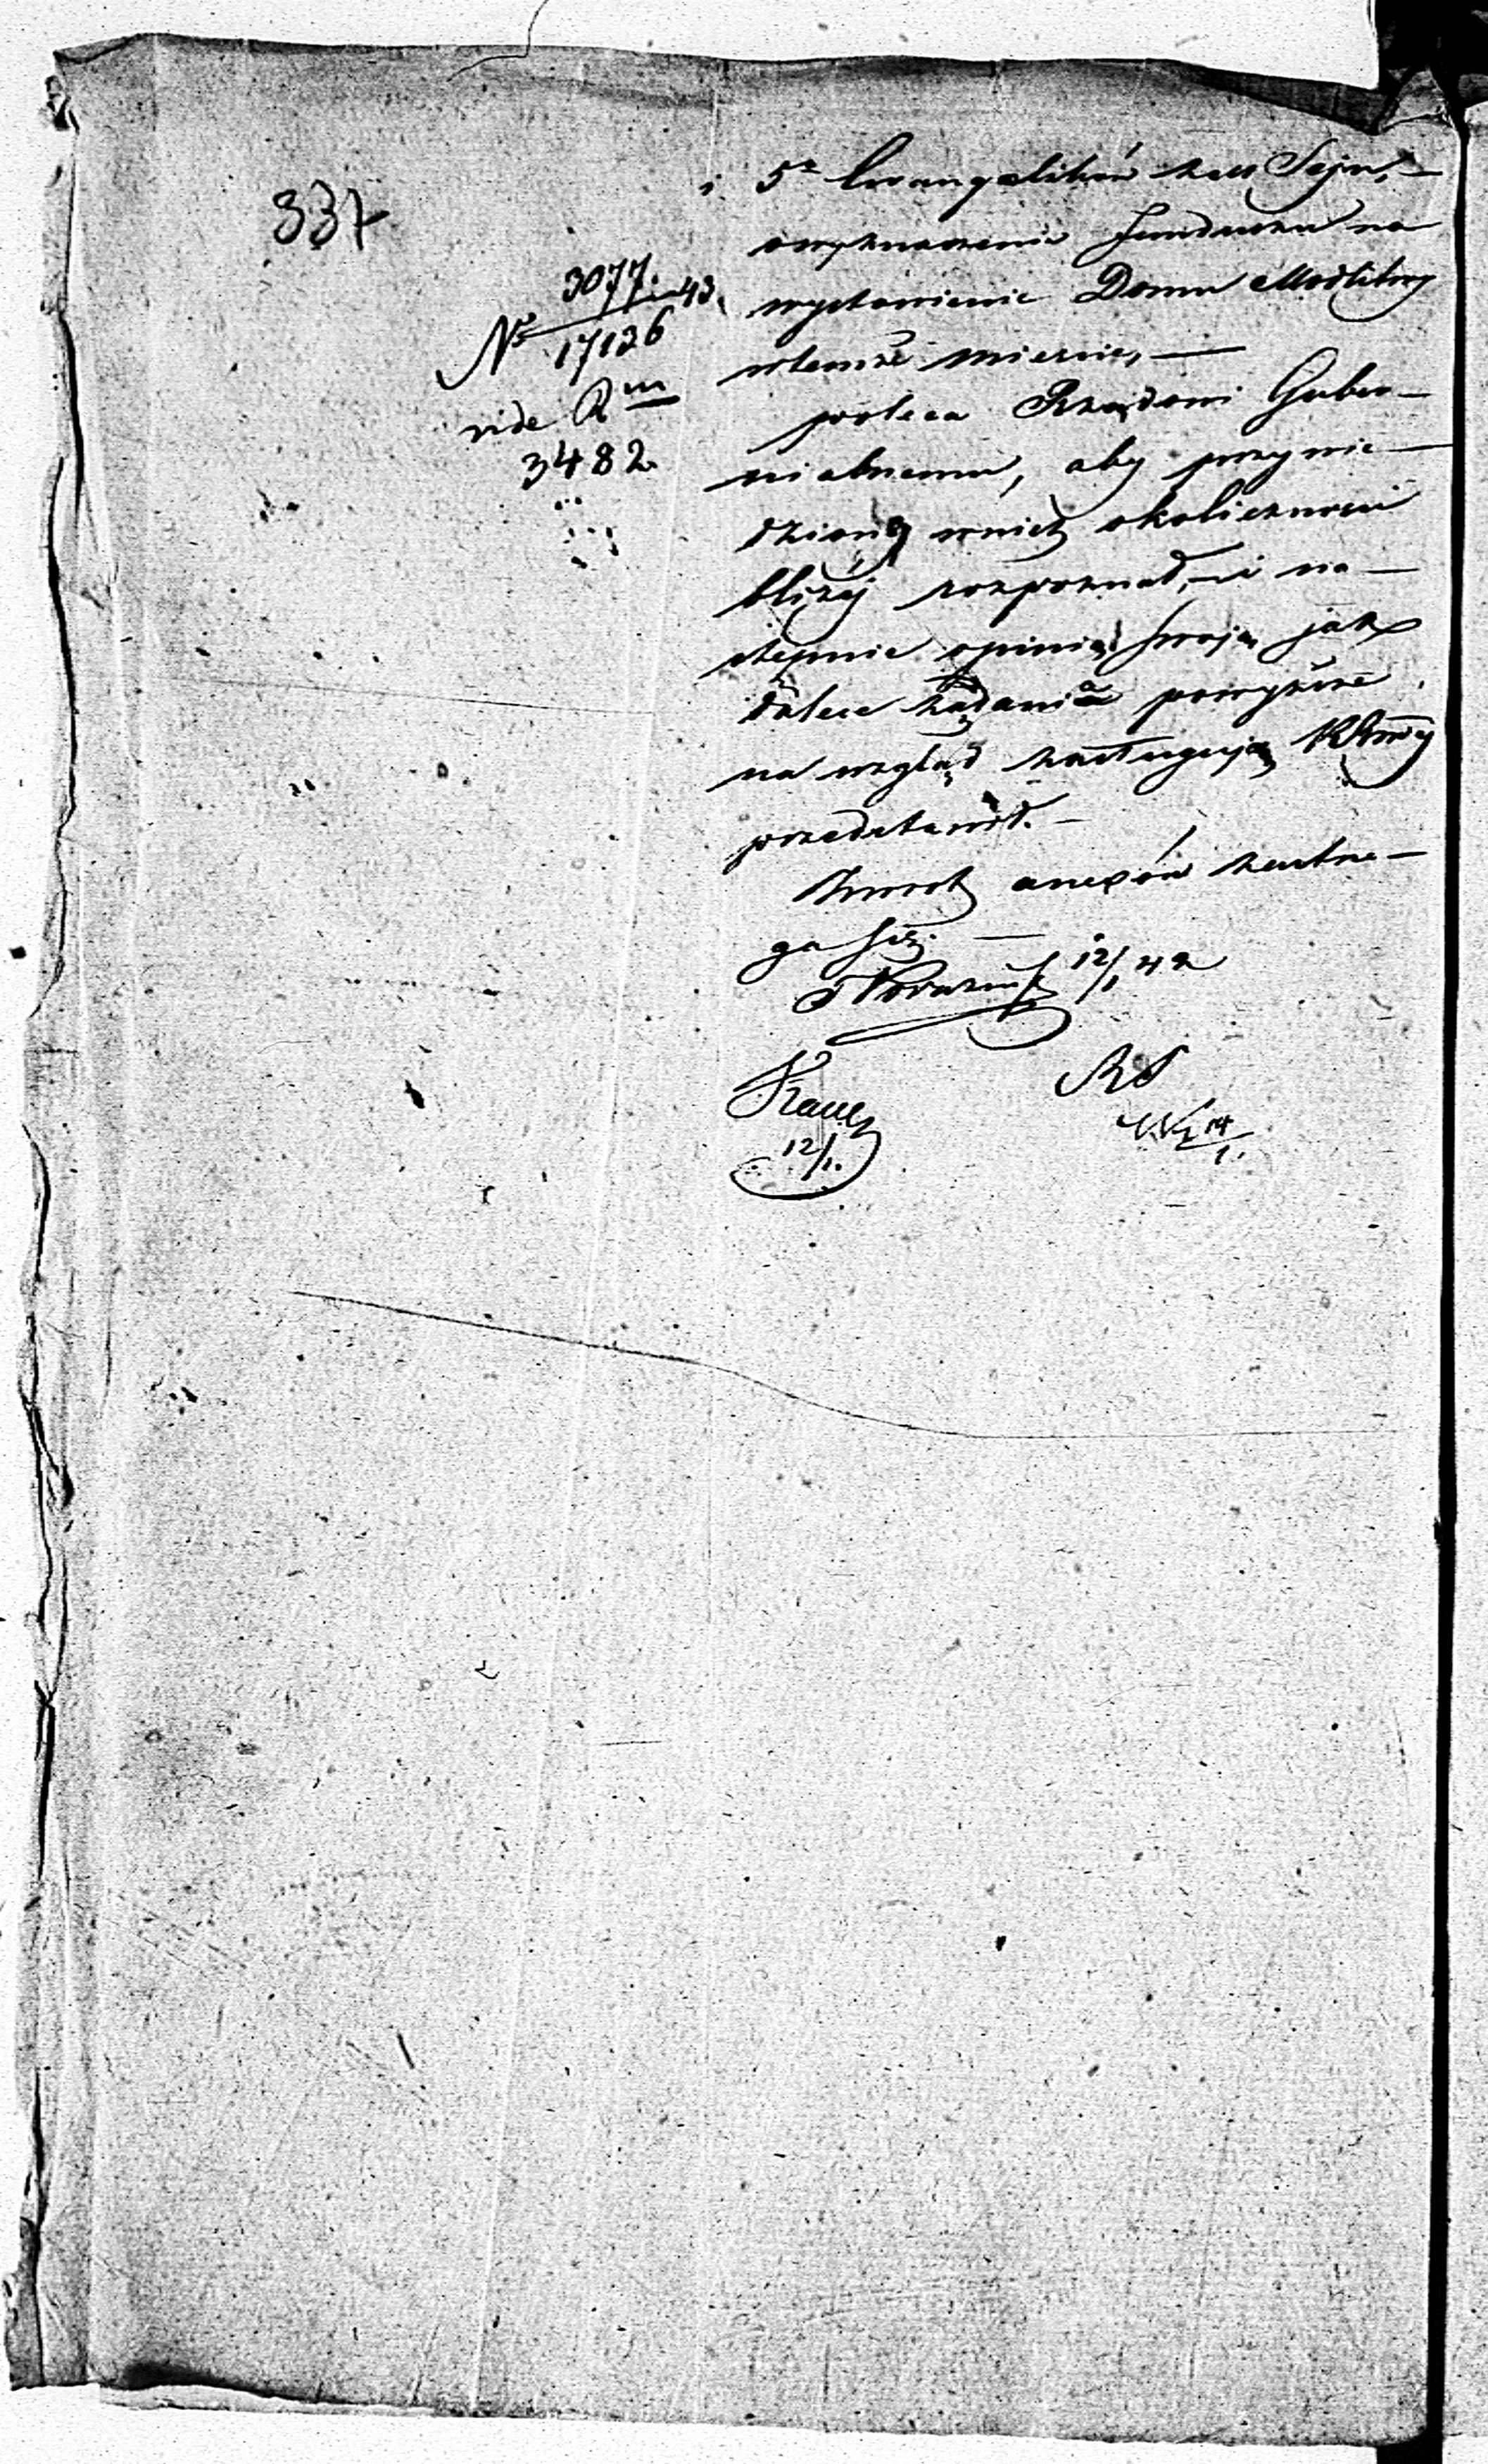 337
3077.43.
Nº 17136
vide Rm
3482.
i 5r Ewangelików Sejn,
o wyznaczenie funduszu na
wystawienie Domu Modlitwy
w temże mieście, —
poleca Rządowi Guber-
nialnemu, aby przywie-
dzione w niéj okoliczności
bliżéj rozpoznał, i na-
stępnie opinią swoją jak
dalece żądania powyższe
na wzgląd zasługują KRząd
przedstawił. —
Zwrot anexów zastrze-
ga się. —
12/1 42
12/1.
14/1.